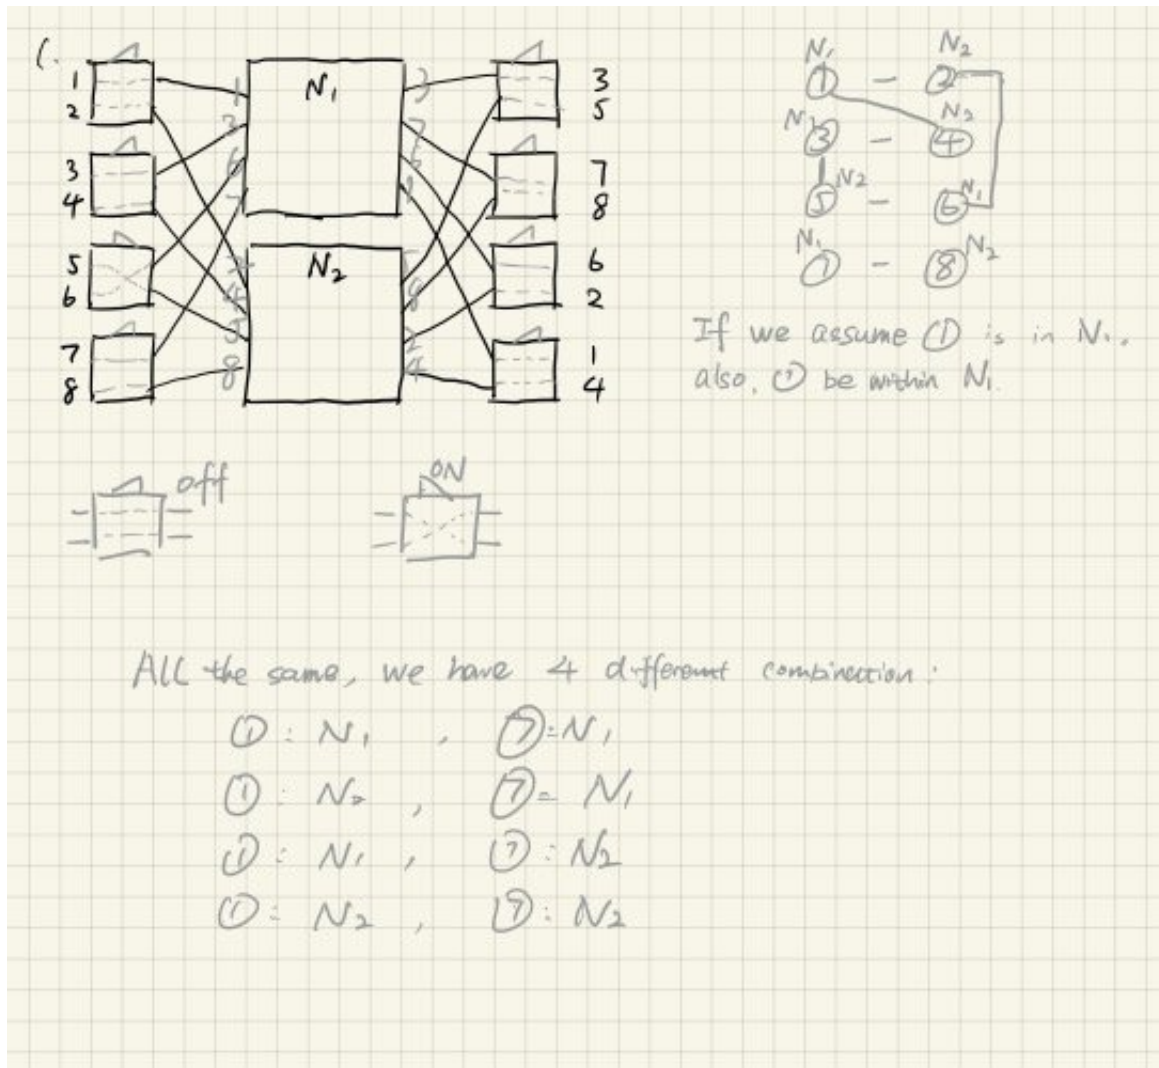 (.
1
2
3
4
5
6
7
8
N₁
1
3
6
7
N₂
2
4
5
8
3
7
6
1
5
8
2
4
3
5
7
8
6
2
1
4
N₁ N₂
① - ②
N₁ N₂
③ - ④
N₂ N₁
⑤ - ⑥
N₁ N₂
⑦ - ⑧
If we assume ① is in N₁,
also, ⑦ be within N₁
off
ON
ALL the same, we have 4 different combinection:
①: N₁ , ⑦=N₁
①: N₂ , ⑦= N₁
①: N₁ , ⑦: N₂
①: N₂ , ⑦: N₂